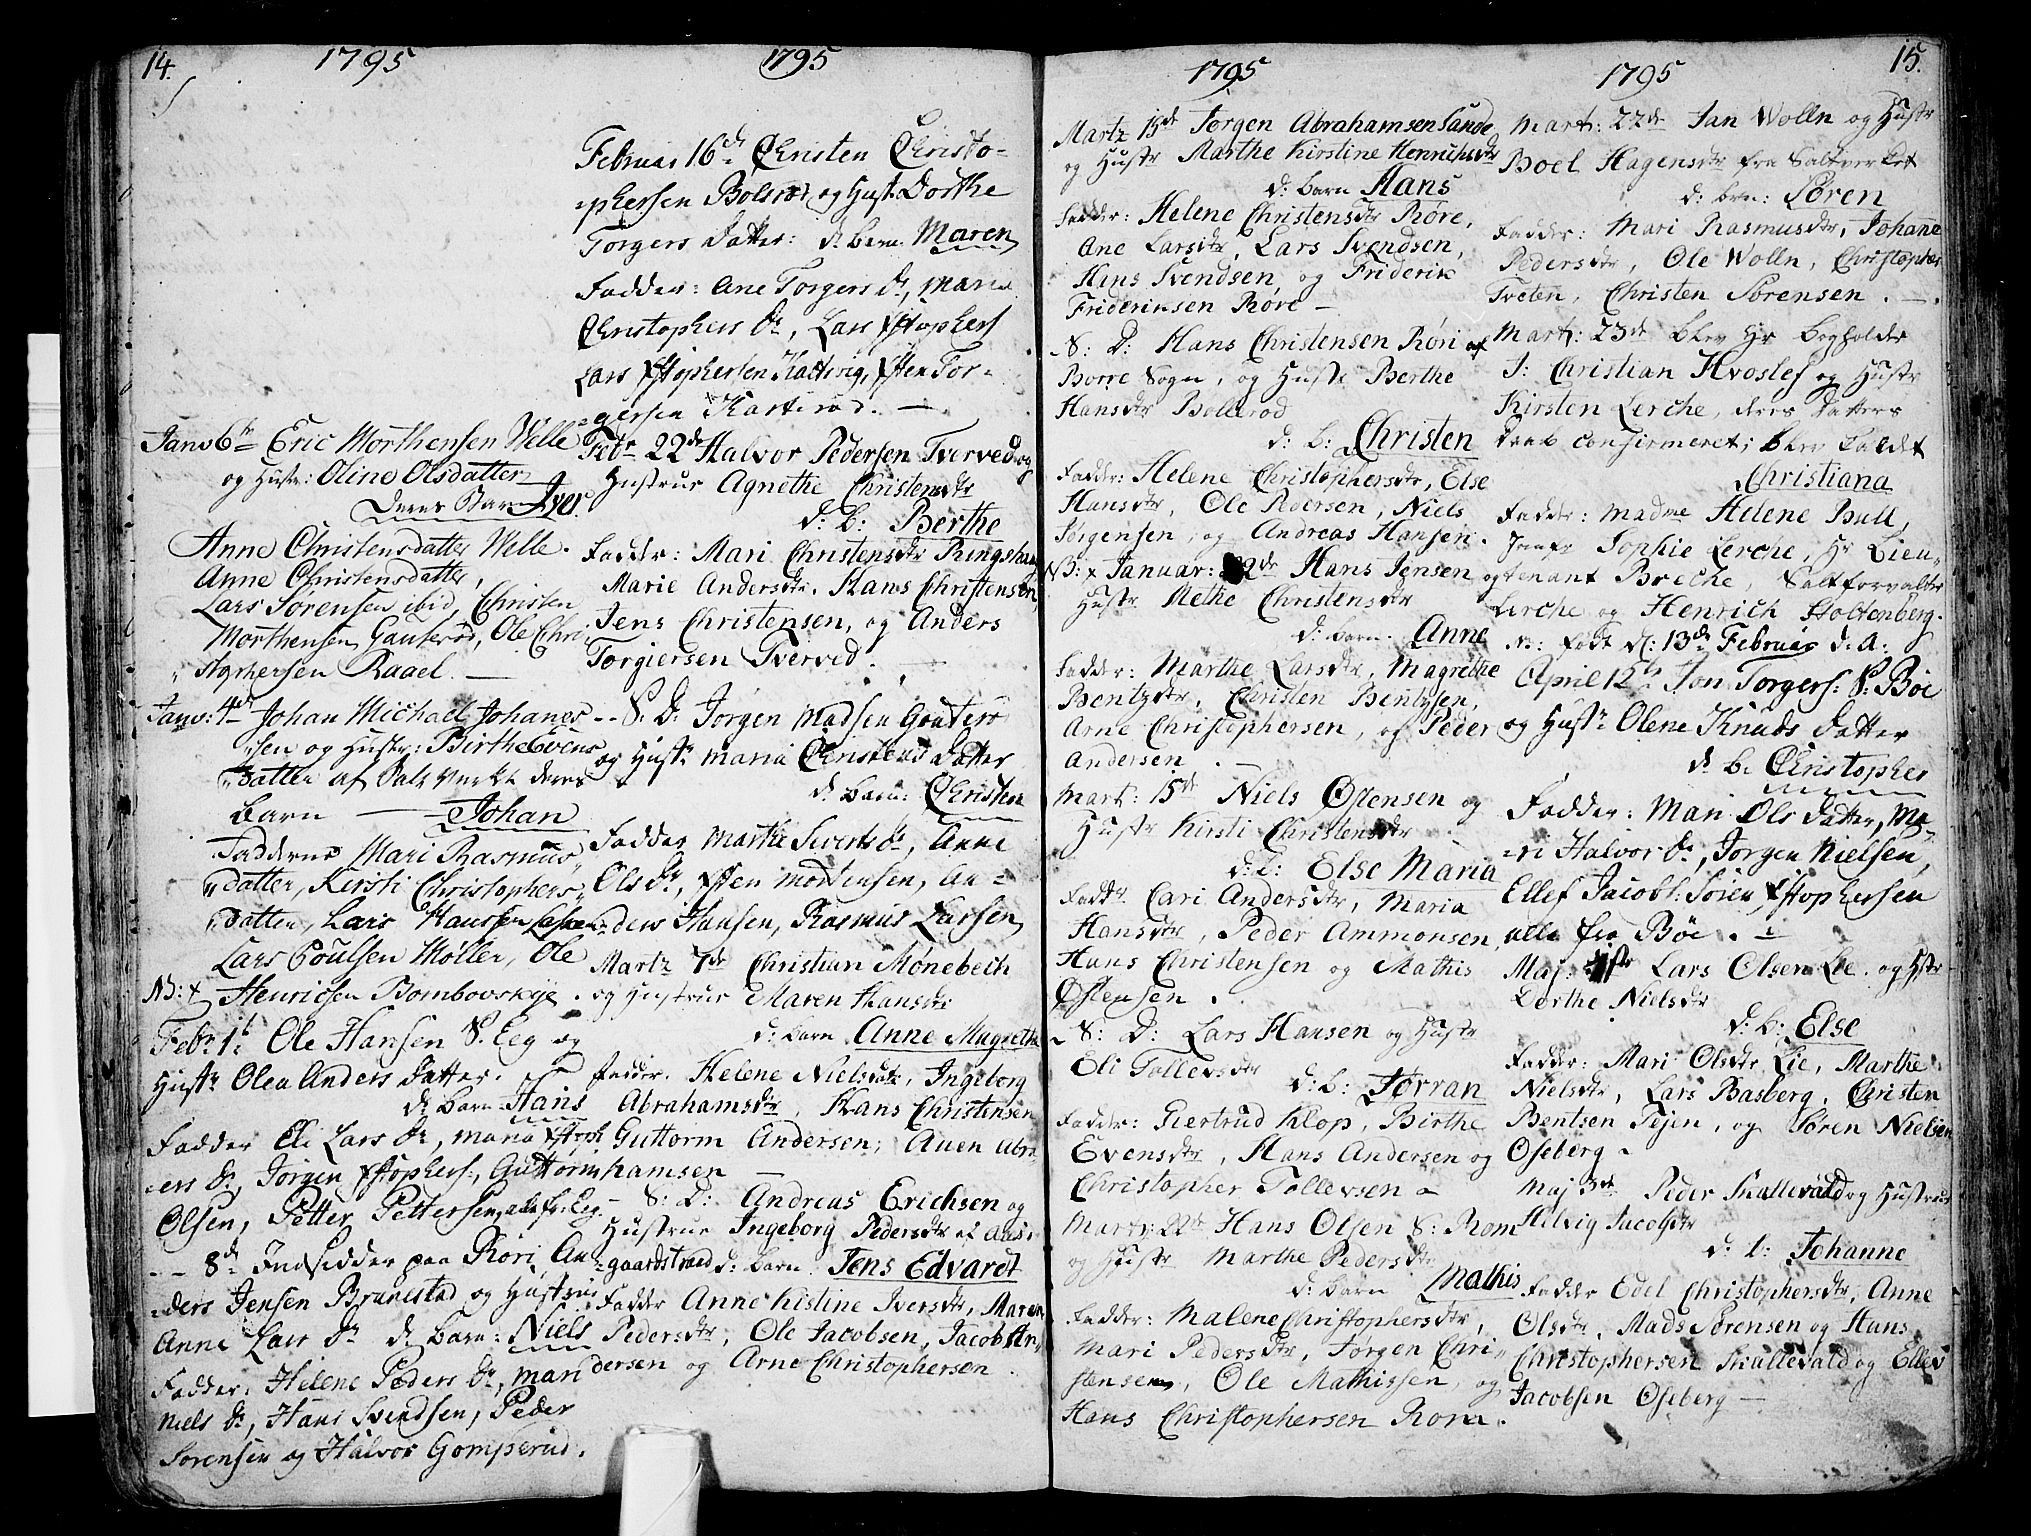 14.
1795
Janv 6te Eric Morthensen Welle
og Hustr: Oline Olsdatter
Deres Barn Iver.
Anne Christensdatter Welle.
Anne Christensdatter,
Lars Sørensen ibid, Christen
Morthensen Gauterød, Ole Chri-
stophersen Raael. —
Janv: 4de Johan Michael Johanes
sen og Hustr: Birthe Evens
Datter af Salt Verket deres
Barn — Johan
Fadderne Mari Rasmus
datter, Kersti Christophers
datter, Lars Hanssen
Lars Poulsen Møller, Ole
NB: x Henricsen Bombovskye.
Febr 1te Ole Hansen S. Eeg og
Hustr Olea Anders Datter.
d: Barn Hans
Fadder Eli Lars Dr, Maria Xstoph
ers Dr, Jørgen Xstophers:, Guttorm
Olsen, Petter Pettersen, alle fr. Eeg.
— 8de Indsidder paa Røri An-
ders Jensen Brunestad og Hustrue
Anne Lars Dr d: Barn: Niels
Fadder: Helene Peders Dr, Mari
Niels Dr, Hans Svendsen, Peder
Sørensen og Halvor Gomperud.
1795
Februar 16de Christen Christo-
phersen Bolsrød og Hust. Dorthe
Torgers Datter: d: Barn. Maren
Fadder: Ane Torgers Dr, Maria
Christophers Dr, Lars Xstophers
Lars Xstophersen Kattevig, Xsten Tor-
gersen Karterød. —
Febr 22de Halvor Pedersen Tverved og
Hustrue Agnethe Christensdtr
d: b: Berthe
Fadder: Mari Christensdtr Ringshaug
Marie Andersdtr. Hans Christensen,
Jens Christensen, og Anders
Torgiersen Tverved. —
— S. D. Jørgen Madsen Gouterø
og Hustr Maria Christens Datter
d: Barn: Christen
Fadder Marthe Siverts Dr, Anne
Ols Dr, Xsten Mortensen, An-
ders Hansen, Rasmus Larsen
Martz 7de Christian Mønebech
og Hustrue Maren Hansdtr
d: barn Anne Magretha
Fadder. Helene Nielsdatr, Ingeborg
Abrahamsdtr, Hans Christensen
Guttorm Andersen, Auen Abra-
hamsen —
— S: D: Andreas Erichsen og
Hustrue Ingeborg Pedersdtr af Aas-
gaardstrand d: barn Jens Edvardt
Fadder Anne Kistine Iversdtr, Maren
Pedersdtr, Ole Jacobsen, Jacob An-
dersen og Arne Christophersen.
1795
Martz 15de Jørgen Abrahamsen Sande
og Hustr Marthe Kirstine Henrichsdtr
d: barn Hans
Fadder: Helene Christensdtr Røre,
Ane Larsdtr, Lars Svendsen,
Hans Svendsen og Friderik
Friderichsen Røre —
S: D: Hans Christensen Røri af
Borre Sogn, og Hustr Berthe
Hansdtr Bollerød
d: b: Christen
Fadder: Helene Christophersdtr, Else
Hansdtr, Ole Pedersen, Niels
Jørgensen, og Andreas Hansen.
NB: x Januar: 2de Hans Jensen og
Hustr Methe Christensdtr
d: barn. Anne
Fadder: Marthe Larsdtr, Magrethe
Bentzdtr, Christen Bentzsen,
Arne Christophersen, og Peder
Andersen. —
Mart: 15de Niels Østensen og
Hustr Kirsti Christensdtr
d: b: Else Maria
Faddr Cari Andersdtr, Maria
Hansdtr, Peder Ammonsen,
Hans Christensen og Mathis
Østensen.
S: D: Lars Hansen og Hustr
Eli Tollevsdtr
d: b: Førran
Fadder: Giertrud Klop, Birthe
Evensdtr, Hans Andersen og
Christopher Tollevsen —
Martz: 22de Hans Olsen S: Rom
og Hustr Marthe Pedersdtr
d: barn Mathis
Fadder: Malene Christophersdtr,
Mari Pedersdtr, Jørgen Chri-
stensen, Ole Mathissen, og
Hans Christophersen Rom.
1795
15.
Mart: 22de Jan Wolln og Hustr
Boel Hagensdtr fra Saltverket
d: brn: Søren
Fadder: Mari Rasmusdtr, Johanne
Pedersdtr, Ole Wolln, Christopher
Tveten, Christen Sørensen. —.
Mart: 23de blev Hr Bogholder
J: Christian Hvoslef og Hustr
Kirsten Lerche, deres Datters
Daab confirmeret; blev kaldet
Christiana
Fadder: Madme Helene Bull,
Jomfr Sophie Lerche, Hr Lieu-
tenant Breche, Saltforvalter
Lerche og Henrich Stoltenberg.
N: født d: 13de Februar d: A:
April 12te Jon Torgers: S: Bøe
og Hustr Olene Knuds Datter
d: b: Christopher
Fadder: Mari Ols Datter, Ma-
ri Halvor Dr, Jørgen Nielsen,
Ellef Jacobs: Søren Xstophersen
alle fra Bøe. —
Maj: 1ste Lars Olsen Lie. og Hstr
Dorthe Nielsdtr
d: b: Else
Fadder: Mari Olsdtr Lie, Marthe
Nielsdtr, Lars Basberg, Christen
Bentsen Fijen, og Søren Nielsen
Oseberg —
Maj 3de Peder Skallevald og Hustrue
Helvig Jacobsdtr
d: b: Johanne
Fadder Edel Christophersdtr, Anne
Olsdtr, Mads Sørensen og Hans
Christophersen Skallevald og Ellev
Jacobsen Oseberg —